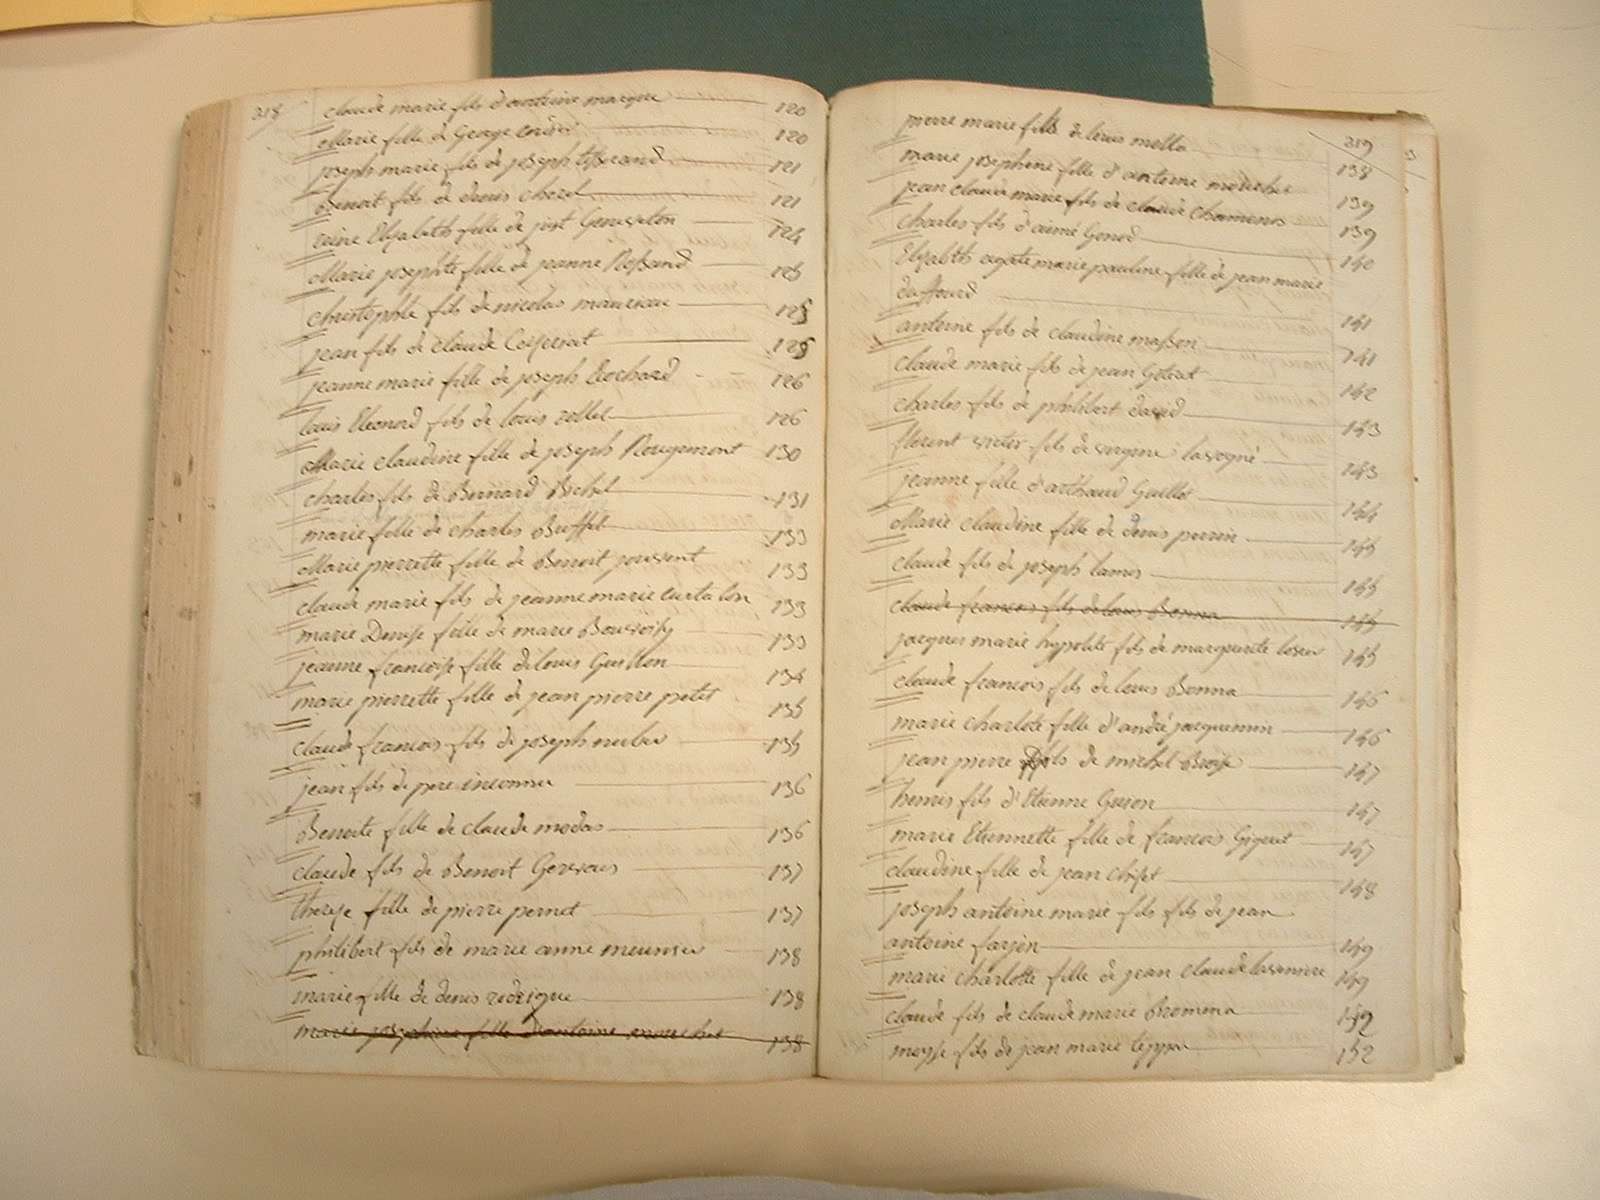 318
claude marie fils d'antoine marque 120
Marie fille de George 120
joseph marie fils de joseph tisserand 121
Benoit fils de denis cherel 121
reine Elizabeth fille de just 124
Marie josephte fille de jeanne Rossand 125
christophle fils de nicolas 125
jean fils de claude 125
jeanne marie fille de joseph Rochard 126
louis Eleonord fils de louis rollet 126
Marie claudine fille de joseph Rougemont 130
charles fils de Bernard Bichel 131
marie fille de charles Buffet 133
Marie pierrette fille de Benoit 133
claude marie fils de jeanne marie curtalon 133
marie Denise fille de marie 133
jeanne francoise fille de louis Guillon 134
marie pierrette fille de jean pierre petit 135
claude francois fils de joseph 135
jean fils de pere inconnu 136
Benoite fille de claude modas 136
claude fils de Benoit Gervais 137
therese fille de pierre pernet 137
philibert fils de marie anne meunier 138
marie fille de denis rodrigue 138
marie josephine fille d'antoine mouchet 138
319
pierre marie fils de louis molla 138
marie josephine fille d'antoine mouchet 139
jean claude marie fils de claude chamenos 139
charles fils d'aimé Gonod 140
Elizabeth agate marie pauline fille de jean marie
dufourd 141
antoine fils de claudine masson 141
claude marie fils de jean 142
charles fils de philibert david 143
florent victor fils de virginie 143
jeanne fille d'arthaud Guillot 144
Marie claudine fille de denis perrin 145
claude fils de joseph lamis 145
claude francois fils de louis Bonna 145
jacques marie hypolite fils de marguerite 145
claude francois fils de louis Bonna 146
marie charlote fille d'andré jacquemin 146
jean pierre fils de michel 147
henris fils d'Etienne 147
marie Etiennette fille de francois 147
claudine fille de jean 148
joseph antoine marie fils fils de jean
antoine farjon 149
marie charlotte fille de jean claude 149
claude fils de claude marie Bromina 149
moyse fils de jean marie 152